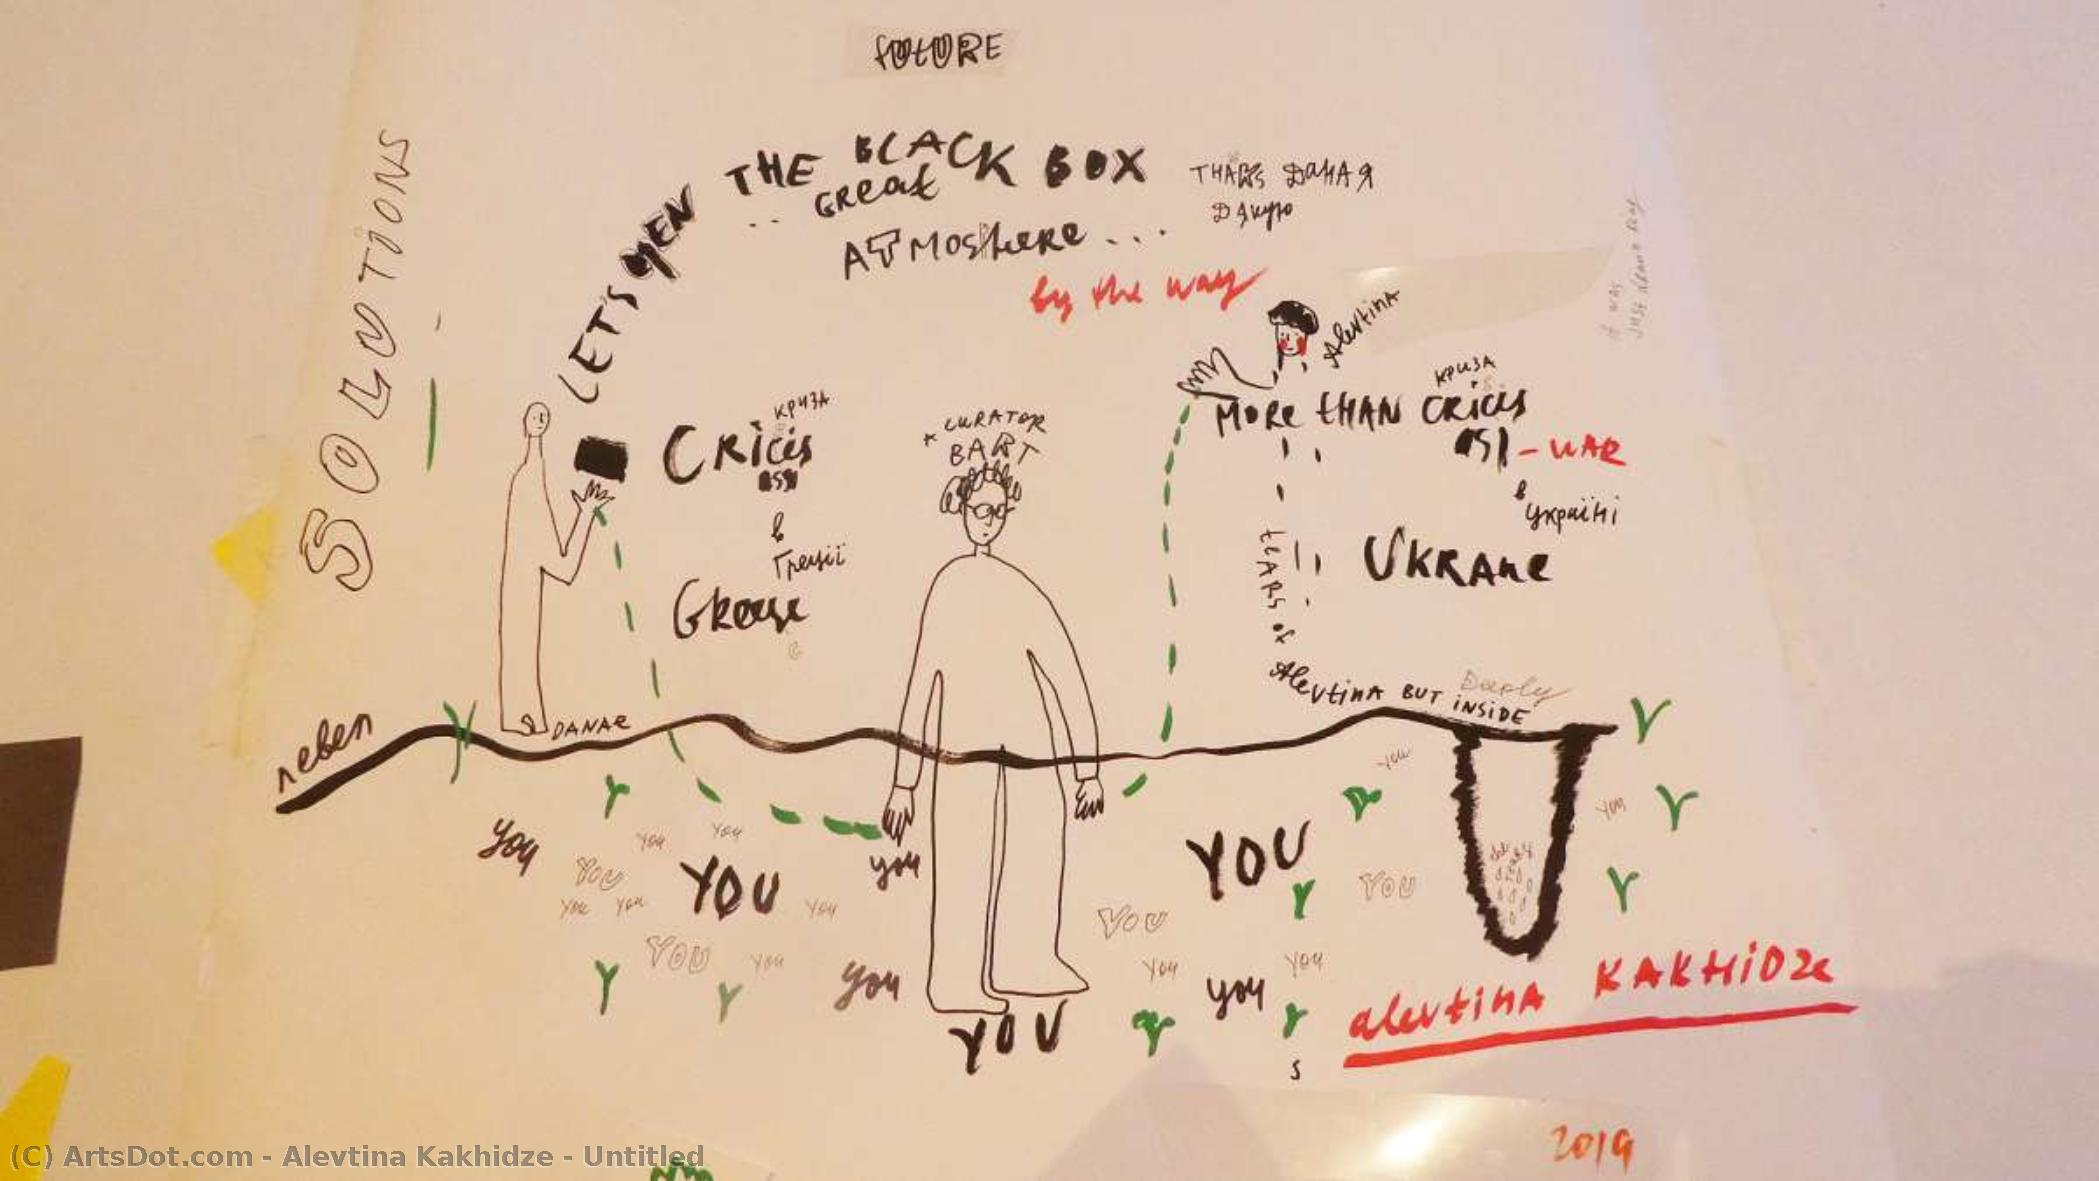 FUtURE
SOLUTIONS
LET'S OPEN THE BLACK BOX
.. GREat
ATMOSpheRE ...
ДАНАЯ
ДЯКУЮ
by the way
Alevtina
it was
just
КРИЗА
CRicis
в
Греції
* CURATOR
BART
КРИЗА
MORE tHAN CRicis
- WAR
в
Україні
UKRAne
teARS of
Alevtina BUT Deeply
iNSiDE
DANAE
you
you
you
YOU
YOU
you
you
YOU
you
you
YOU
you
you
YOU
you
you
YOU
YOU
you
you
you
YOU
s
alevtina KAKHiDze
2019
(C) ArtsDot.com - Alevtina Kakhidze - Untitled